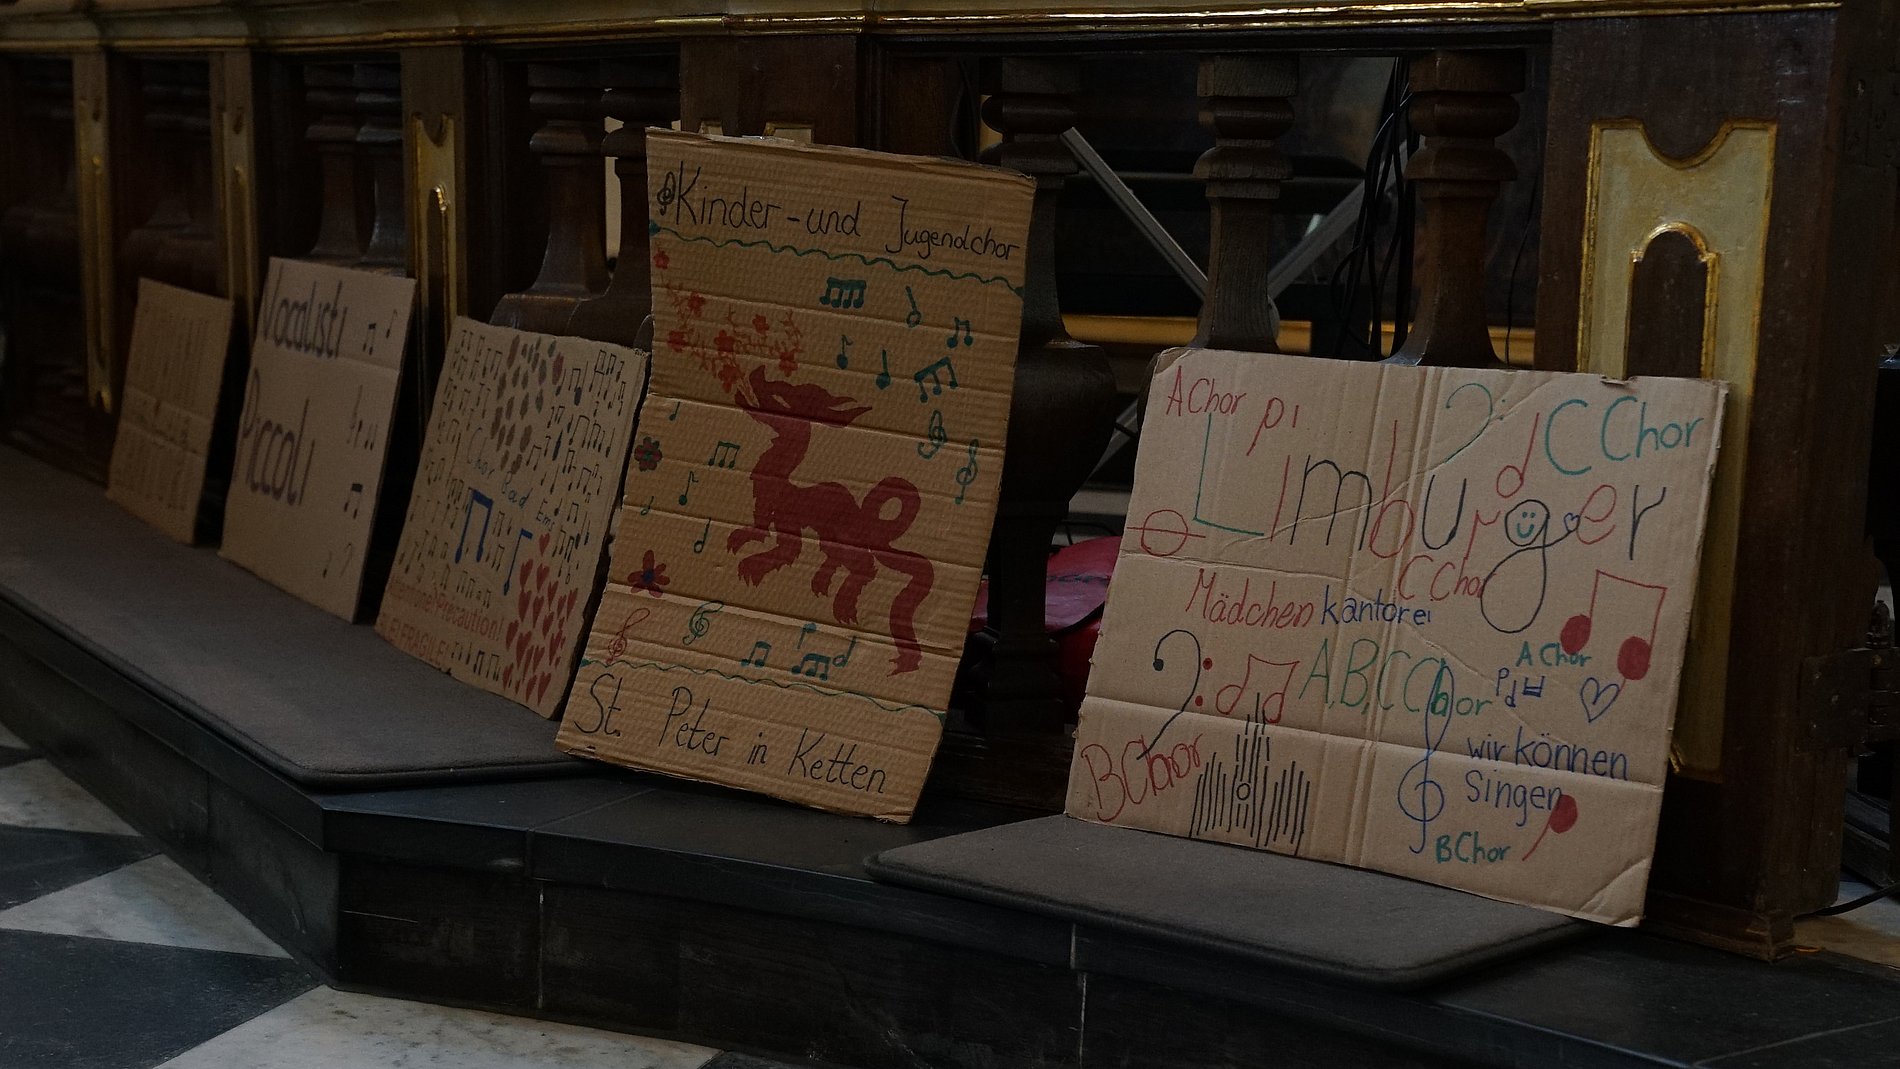 Vocalisti
Piccoli
Chor
Bad
Ems
Attentione! Precaution!
FRAGILE!
Kinder-und Jugendchor
St. Peter in Ketten
A Chor
C Chor
Limburger
C Chor
Mädchenkantorei
A,B,C Chor
A Chor
B Chor
wir können
singen
B Chor